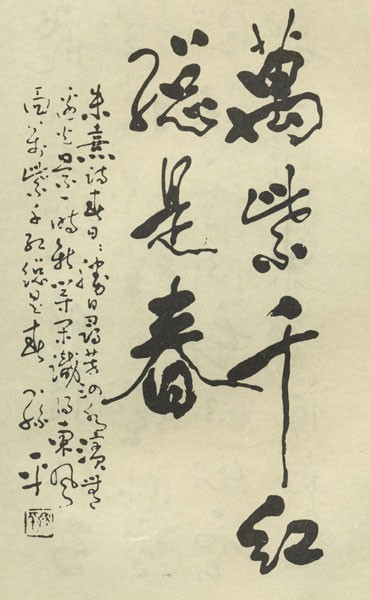 萬紫千紅
總是春
朱熹詩春日:勝日尋芳泗水濱無
邊光景一時新等閑識得東風
面萬紫千紅總是春